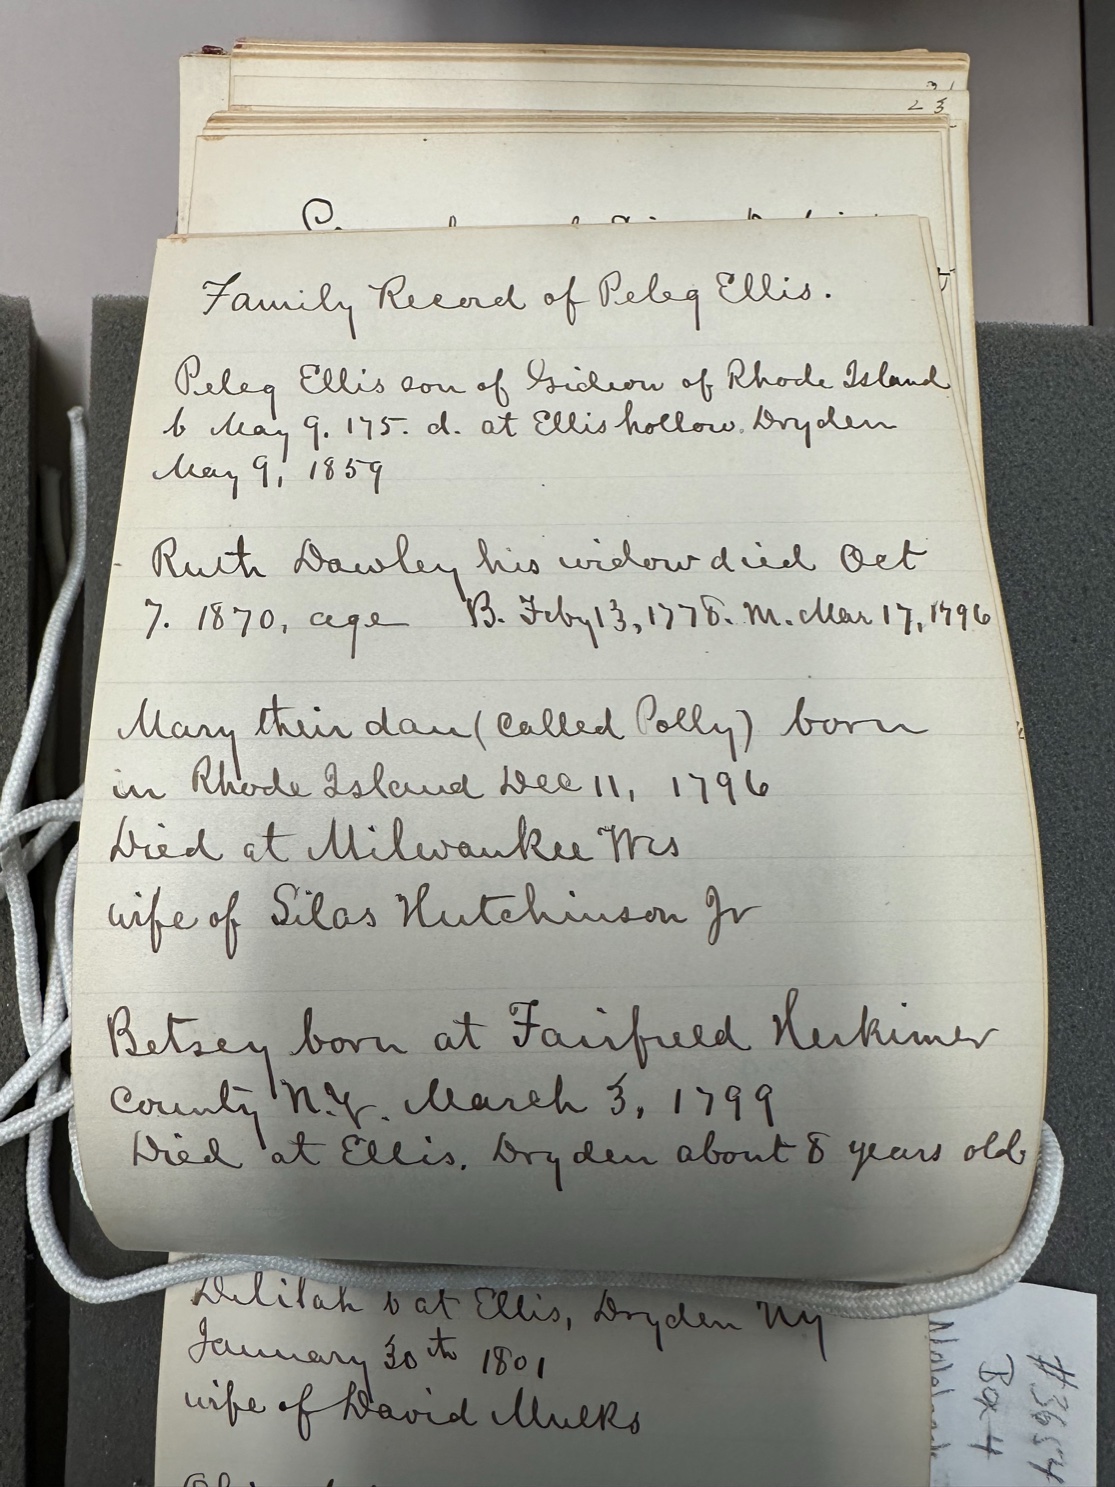 23
Family Record of Peleg Ellis.
Peleg Ellis son of Gideon of Rhode Island
b May 9. 175. d. at Ellis hollow. Dryden
May 9, 1859
Ruth Dawley his widow died Oct
7. 1870, age B. Feby 13, 1778. M. Mar 17, 1796
Mary their dau (called Polly) born
in Rhode Island Dec 11, 1796
Died at Milwaukee Wis
wife of Silas Hutchinson Jr
Betsey born at Fairfield Herkimer
County N.Y. March 3, 1799
Died at Ellis. Dryden about 8 years old
Delilah b at Ellis, Dryden NY
January 30th 1801
wife of David Mulks
#3654
Box 4